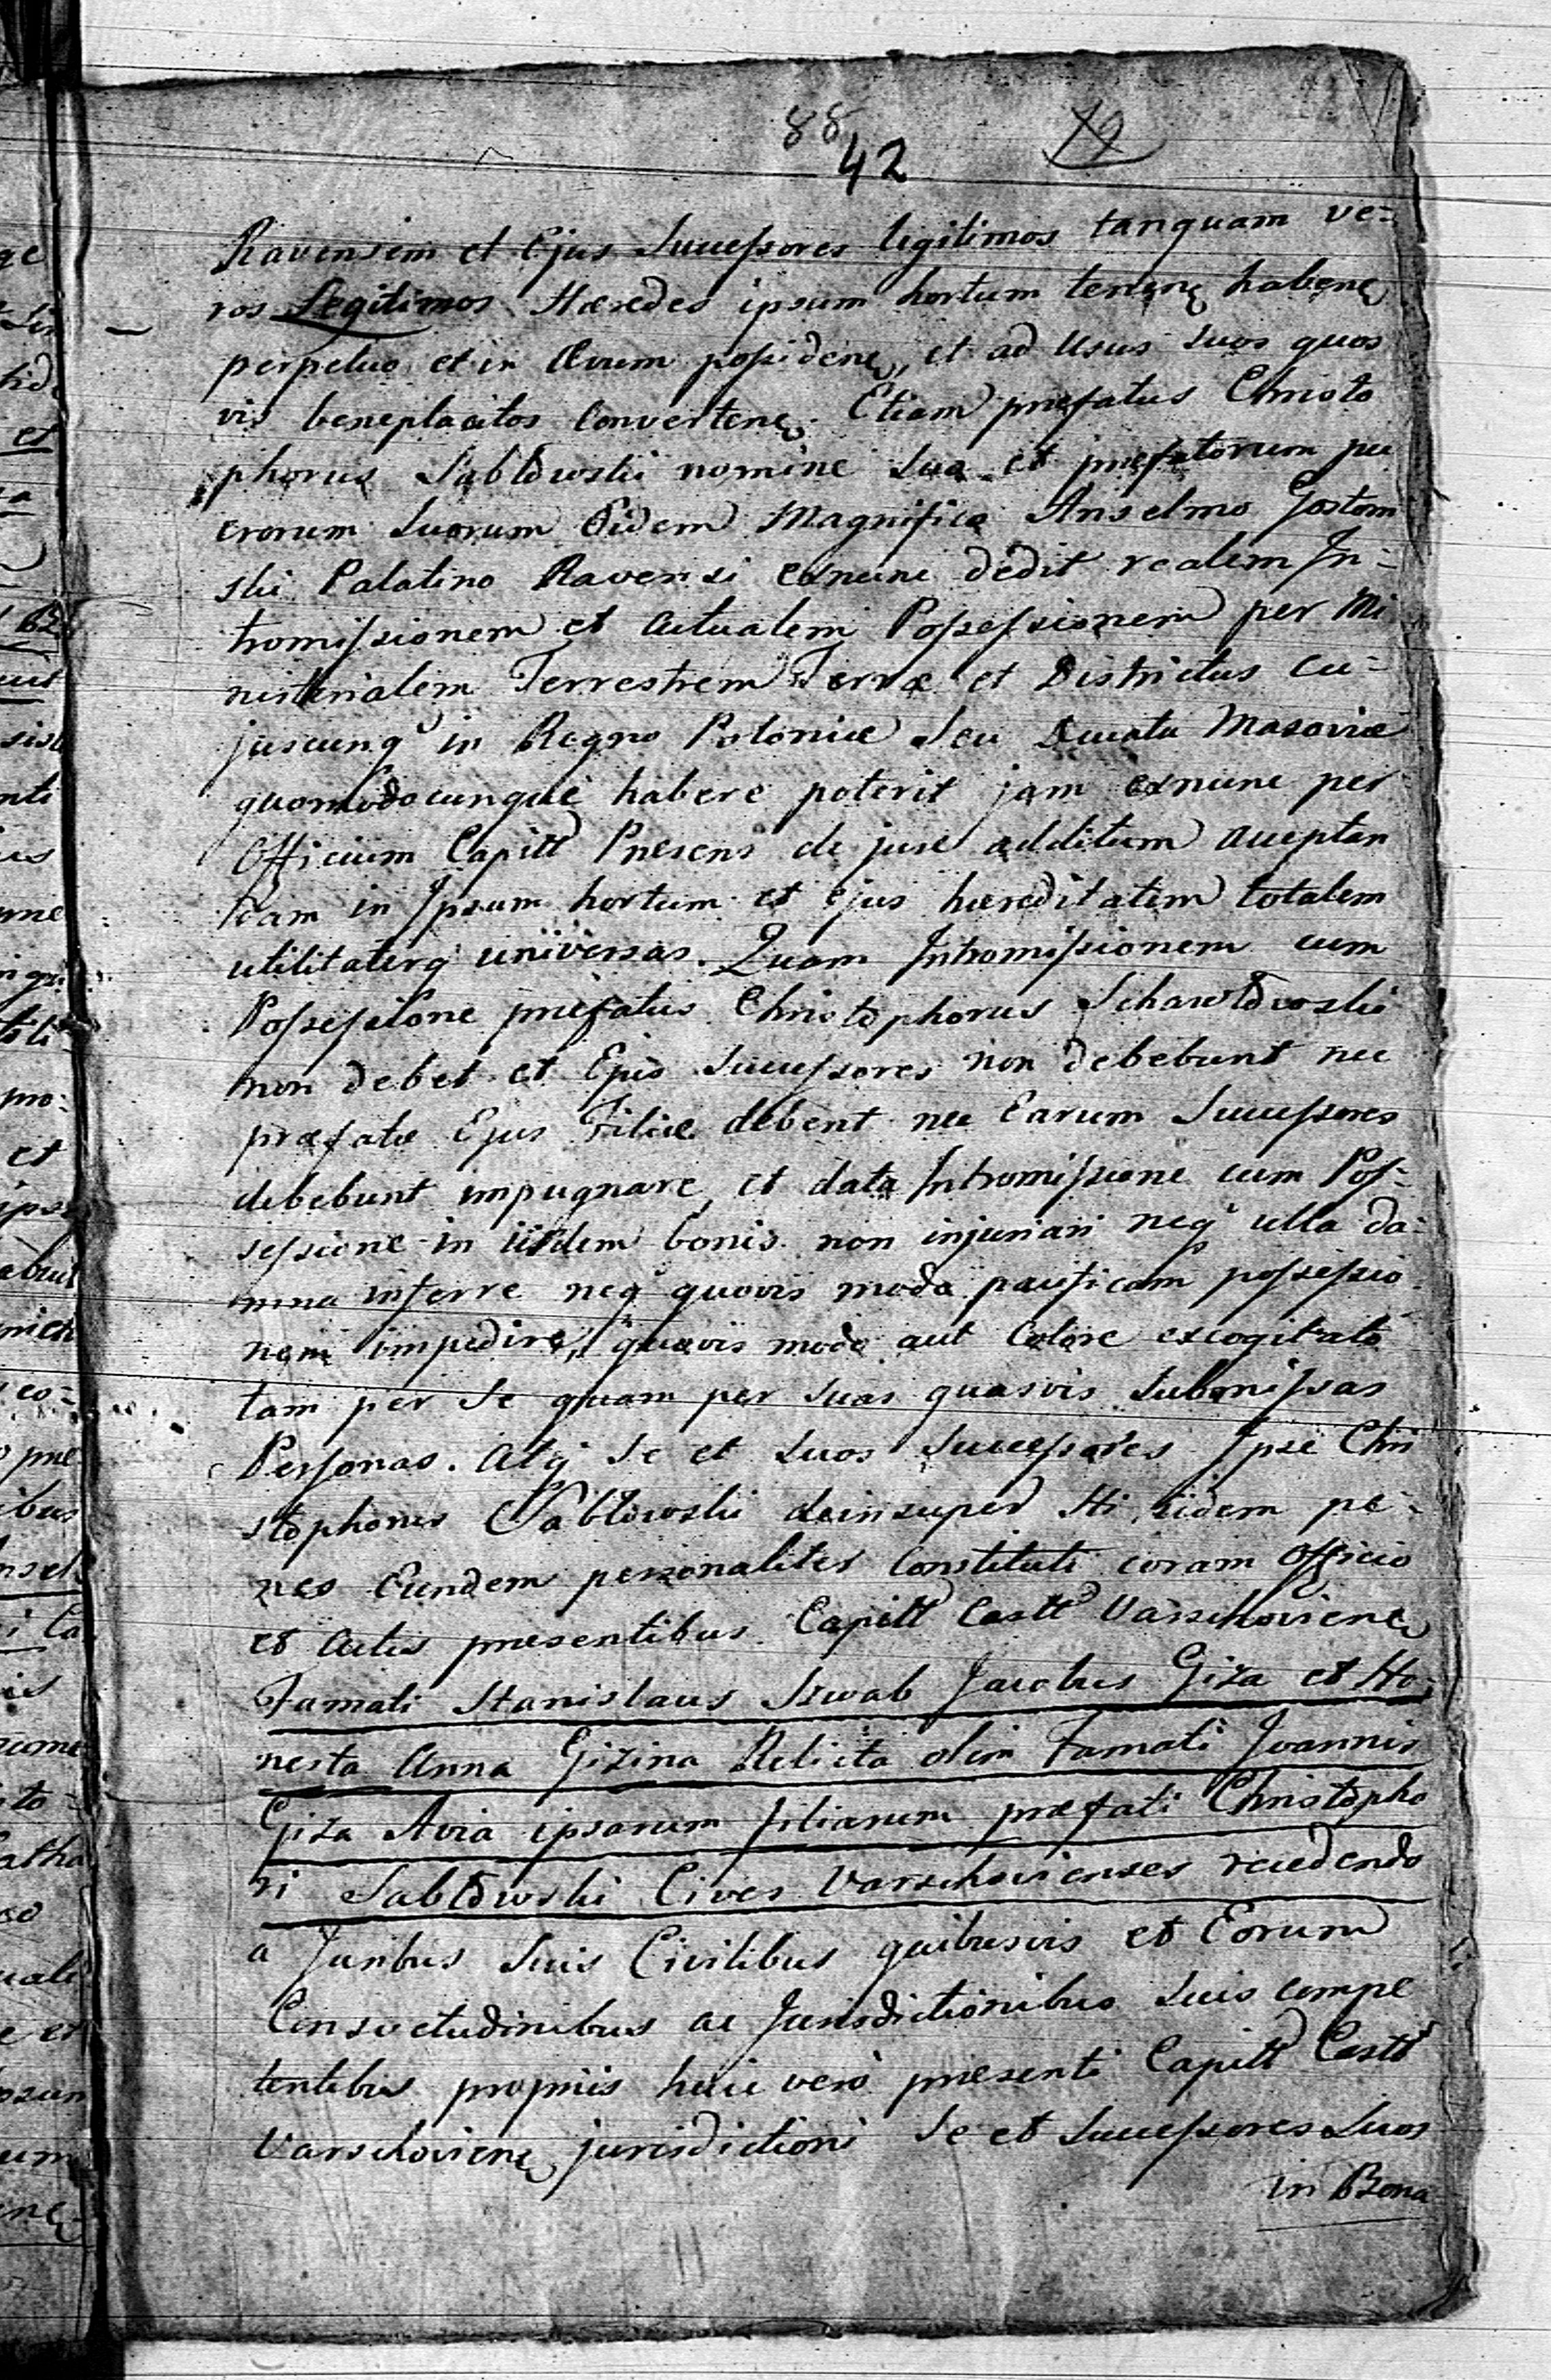 88
42
Ravensem et Ejus Successores legitimos tanquam ve-
ros Legitimos Hæredes ipsum hortum tenenę habenę
perpetuo et in Ævum possidenę, et ad Usus suos quos
vis beneplacitos convertenę. Etiam præfatus Christo
phorus Sabłowski nomine suo et præfatorum pu
erorum suorum Eidem Magnifico Anselmo Gostom
ski Palatino Ravensi exnunc dedit realem In-
tromissionem et actualem Possessionem per Mi
nisterialem Terrestrem Terræ et Districtus cu-
juscunq in Regno Poloniæ seu Ducatu Masoviæ
quomodocunque habere poterit jam exnunc per
Officium Capitt Præsens de jure additum acceptan
dam in Ipsum hortum et ejus hæreditatem totalem
utilitatesq universas. Quam Intromissionem cum
Possessione præfatus Christophorus
non debet et Ejus Successores non debebunt nec
præfatæ Ejus Filiæ debent nec Earum Successores
debebunt impugnare, et data Intromissione cum Pos-
sessione in iisdem bonis non injuriari neq ulla da-
mna inferre neq quovis modo pacificam possessio
nem impedire, quovis modo aut Colore excogitato
tam per Se quam per suas quasvis submissas
Personas. Atq Se et suos Successores Ipse Chri
stophorus Sabłowski deinsuper Hi eidem pe-
nes Eundem personaliter Constituti coram Officio
et Actis præsentibus Capitt Castt Varschovienę
Famati Stanislaus Szwab Jacobus Giza et Ho-
nesta Anna Gizina Relicta olim Famati Joannis
Giza Avia ipsarum filiarum præfati Christopho
ri Sabłowski Cives Varschovienses recedendo
a Juribus suis Civilibus quibusvis et Eorum
Consvetudinibus ac Jurisdictionibus suis compe
tentibus propriis huic vero præsenti Capitt Castt
Varschovienę jurisdictioni Se et Successores suos
in Bona